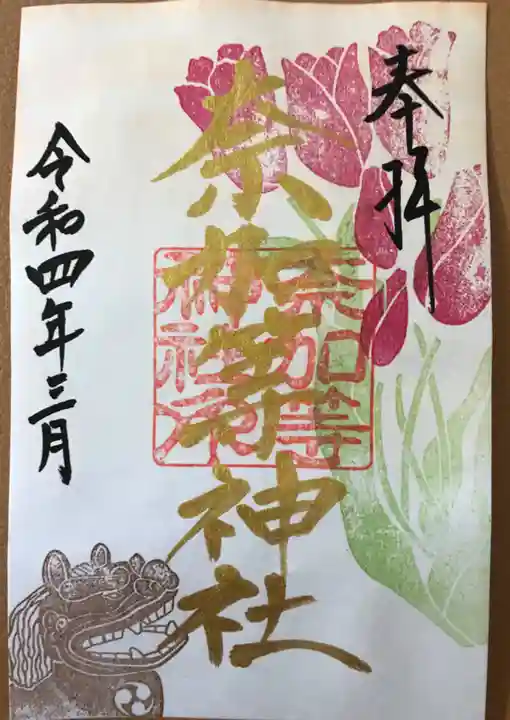 奉拝
奈加等神社
奈加等
神社
令和四年三月